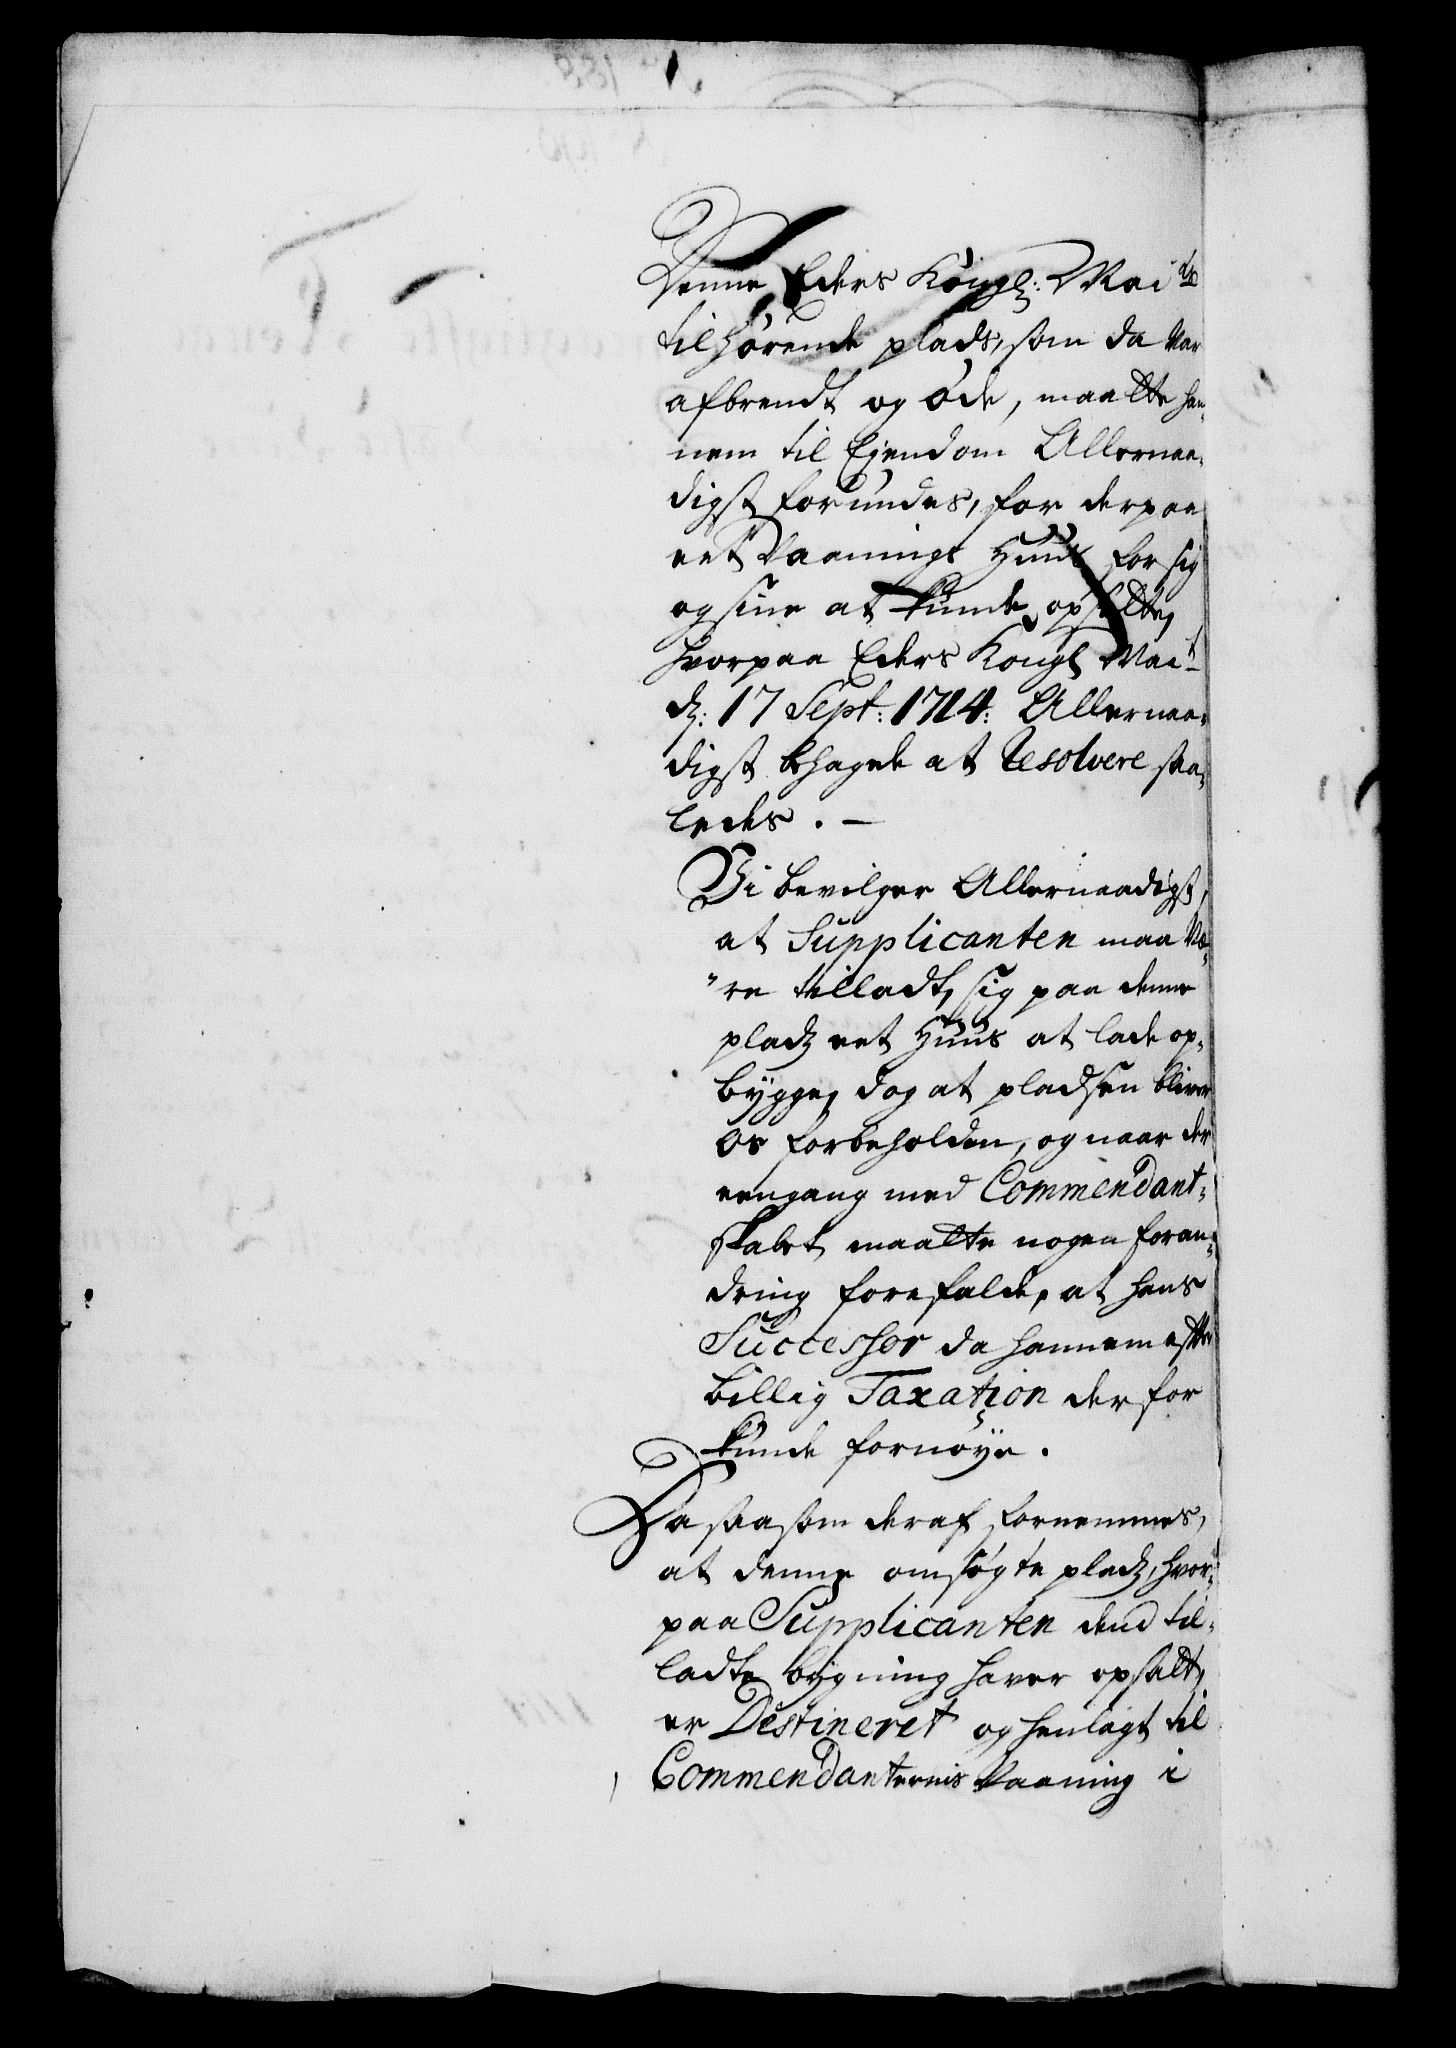 Denne Eders Kongl: Mai^ts
tilhørende plads, som da var
afbrendt og øde, maatte han„
nem til Ejendom Allernaa„
digst forundes, for derpaa
eet Vaanings Huus for sig
og sine at kunde opsette,
hvorpaa Eders Kongl Mai^t
d: 17 Sept: 1714: Allernaa„
digst behagede at Resolvere saa„
ledes. —
Vi bevilger Allernaadigst,
at Supplicanten maa væ„
„re tilladt, sig paa denne
pladz eet Huus at lade op„
bygge, dog at pladsen bliver
Os forbeholden, og naar der
eengang med Commendant„
skabet maatte nogen foran„
dring forefalde, at hans
Successor da hannem efter
billig Taxation der for
kunde fornøye.
Da saasom deraf fornemmes,
at denne omsøgte pladz, hvor„
paa Supplicanten dend til„
ladte bygning haver opsatt,
er Destineret og henlagt til
Commendanternis Vaaning i